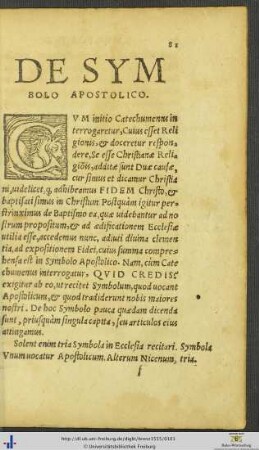 81
DE SYM
BOLO APOSTOLICO.
CVM initio Catechumenus in
terrogaretur, Cuius esset Reli
gionis, & doceretur respon
dere, Se esse Christianæ Reli
gionis, additæ sunt Duæ causæ,
cur simus et dicamur Christia
ni, uidelicet, q, adhibeamus FIDEM Christo, &
baptisati simus in Christum. Postquàm igitur per
strinximus de Baptismo ea, quæ uidebantur ad no
strum propositum, & ad ædificationem Ecclesiæ
utilia esse, accedemus nunc, adiuti diuina clemen
tia, ad expositionem Fidei, cuius summa compre-
hensa est in Symbolo Apostolico. Nam, cùm Cate
chumenus interrogatur, QVID CREDIS?
exigitur ab eo, ut recitet Symbolum, quod uocant
Apostolicum, & quod tradiderunt nobis maiores
nostri. De hoc Symbolo pauca quædam dicenda
sunt, priusquàm singula capita, seu articulos eius
attingamus.
Solent enim tria Symbola in Ecclesia recitari. Symbola
Vnum uocatur Apostolicum. Alterum Nicenum, tria.
f
http://dl.ub.uni-freiburg.de/diglit/
© Universitätsbibliothek Freiburg